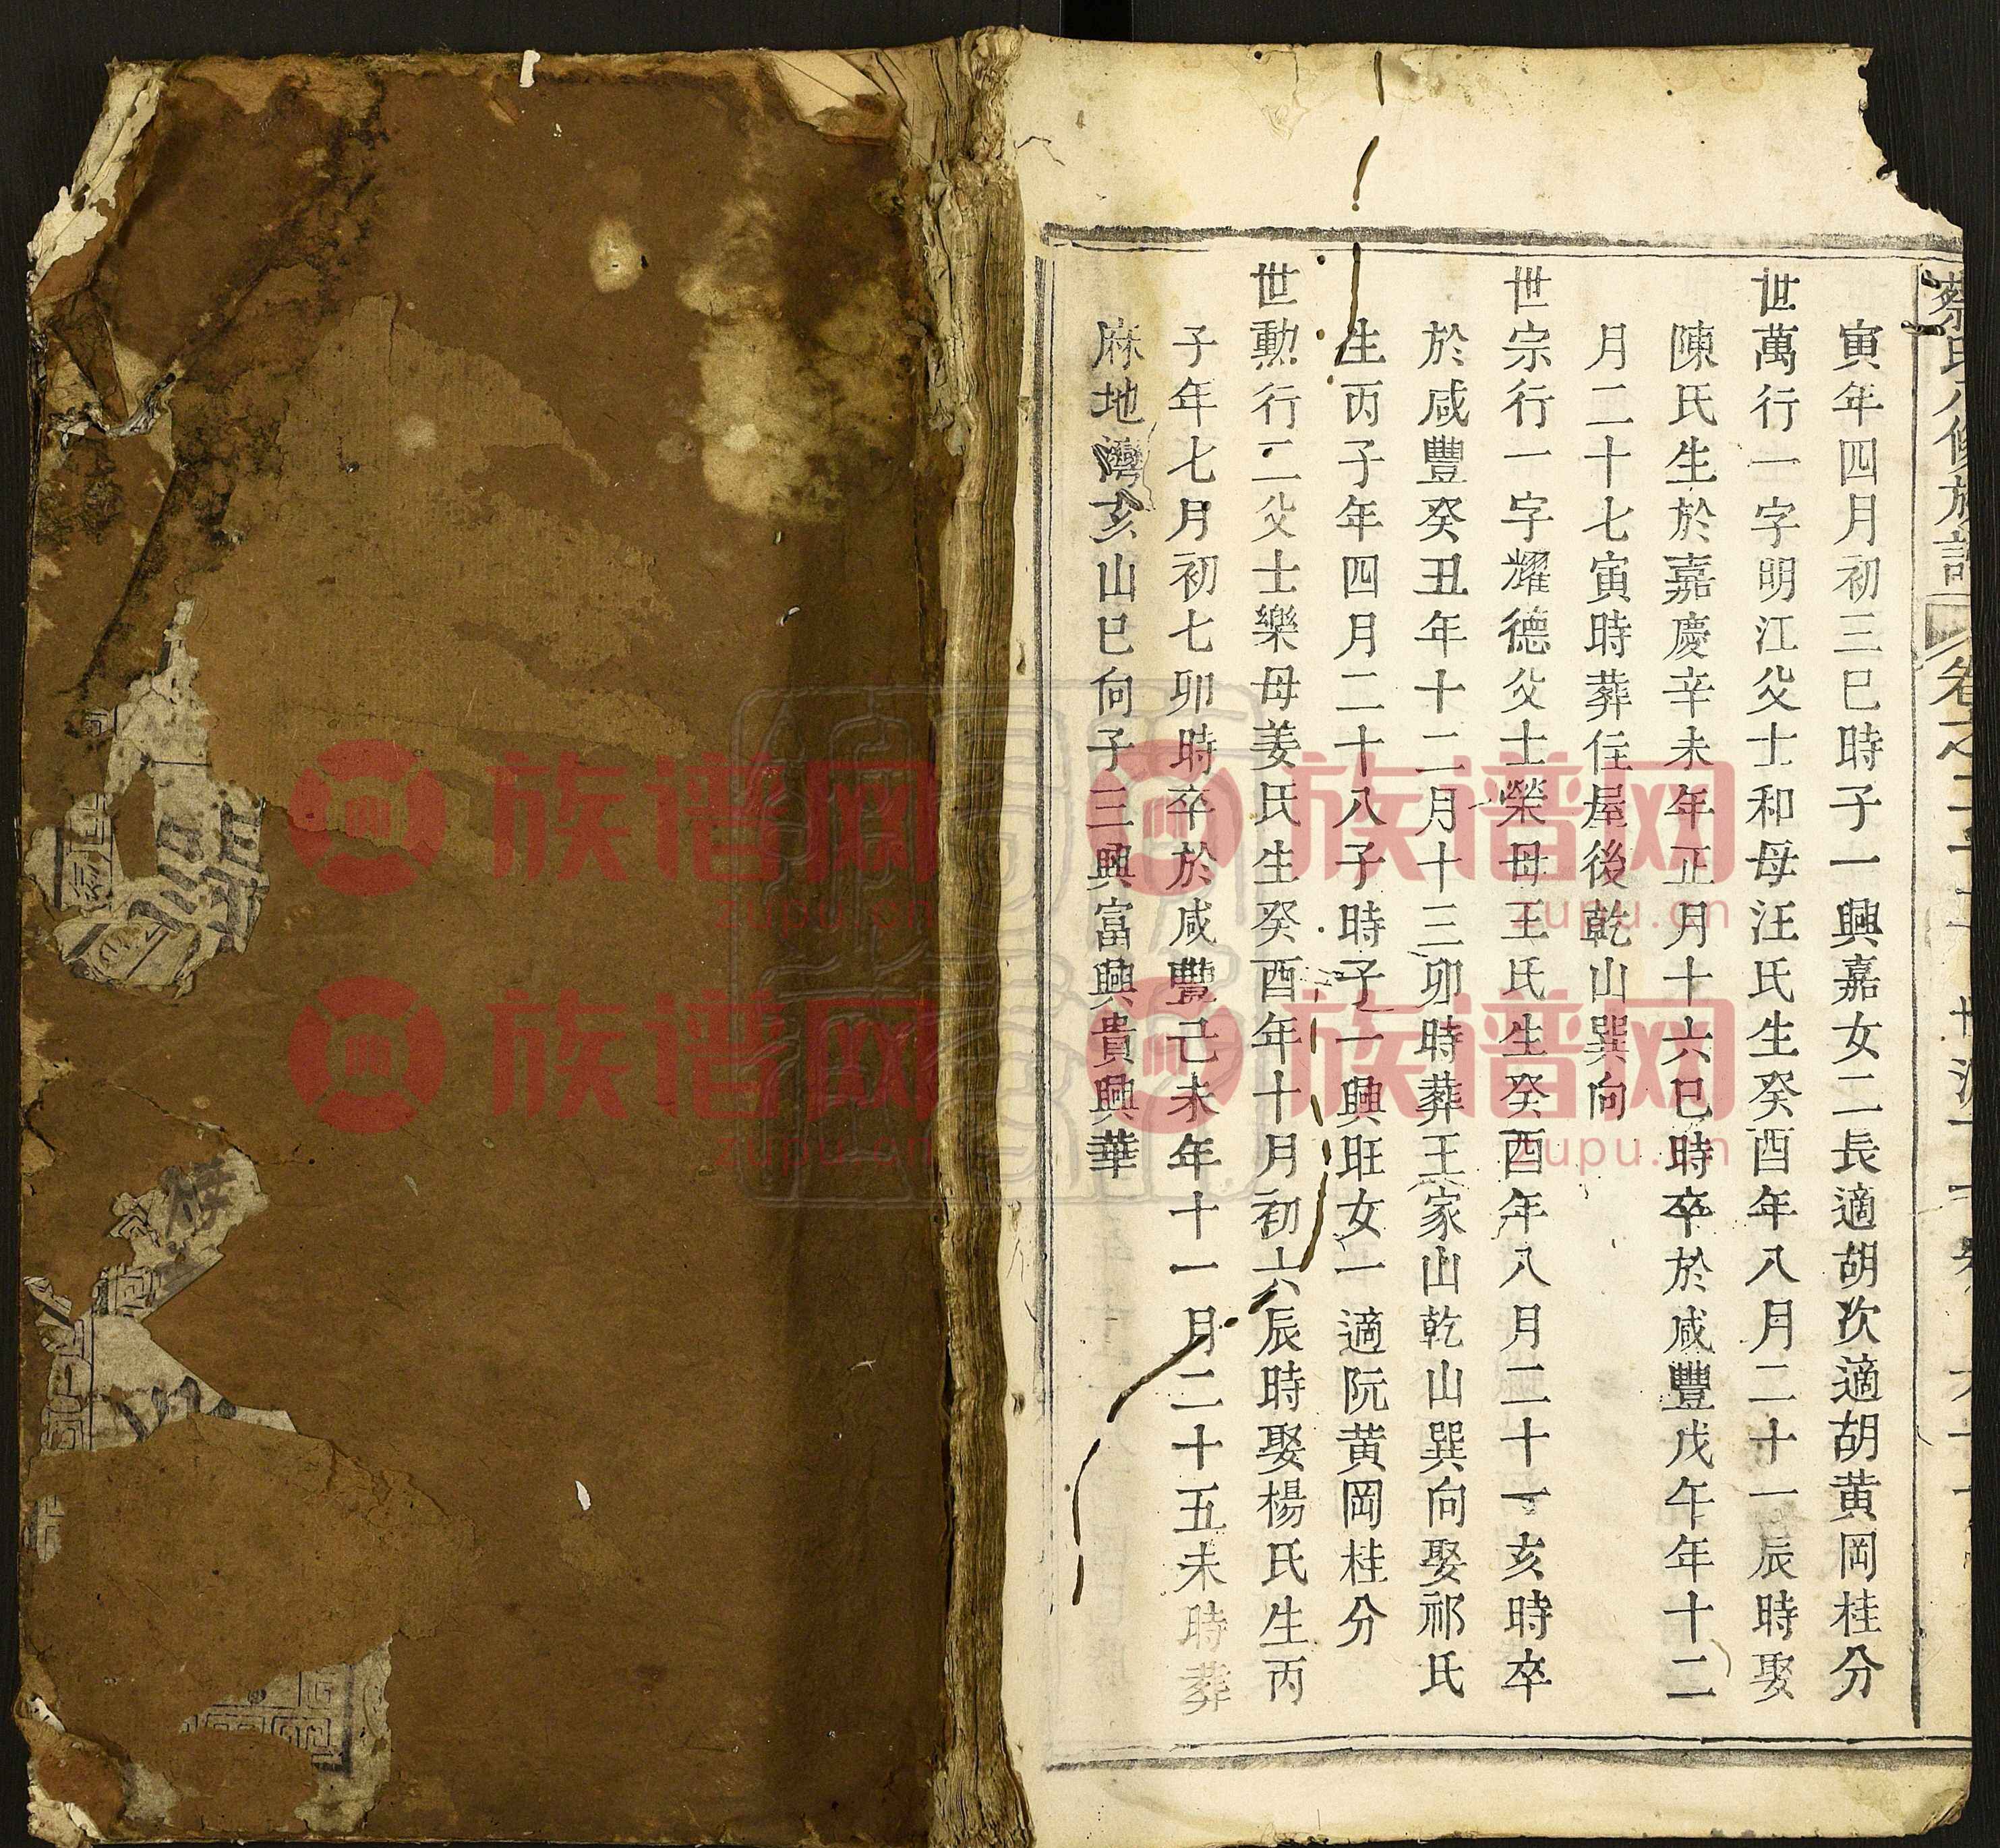 蔡氏八修族譜
寅年四月初三巳時子一興嘉女二長適胡次適胡黄岡桂分
世萬行一字明江父士和母汪氏生癸酉年八月二十一辰時娶
陳氏生於嘉慶辛未年正月十六巳時卒於咸豐戊午年十二
月二十七寅時葬住屋後乾山巽向
世宗行一字耀德父士榮母王氏生癸酉年八月二十一亥時卒
於咸豐癸丑年十二月十三卯時葬王家山乾山巽向娶祁氏
生丙子年四月二十八子時子一興旺女一適阮黄岡桂分
世勲行二父士樂母姜氏生癸酉年十月初六辰時娶楊氏生丙
子年七月初七卯時卒於咸豐己未年十一月二十五未時葬
麻地灣亥山巳向子三興富興貴興華
族谱网
zupu.cn
族谱网
zupu.cn
族谱网
zupu.cn
族谱网
zupu.cn